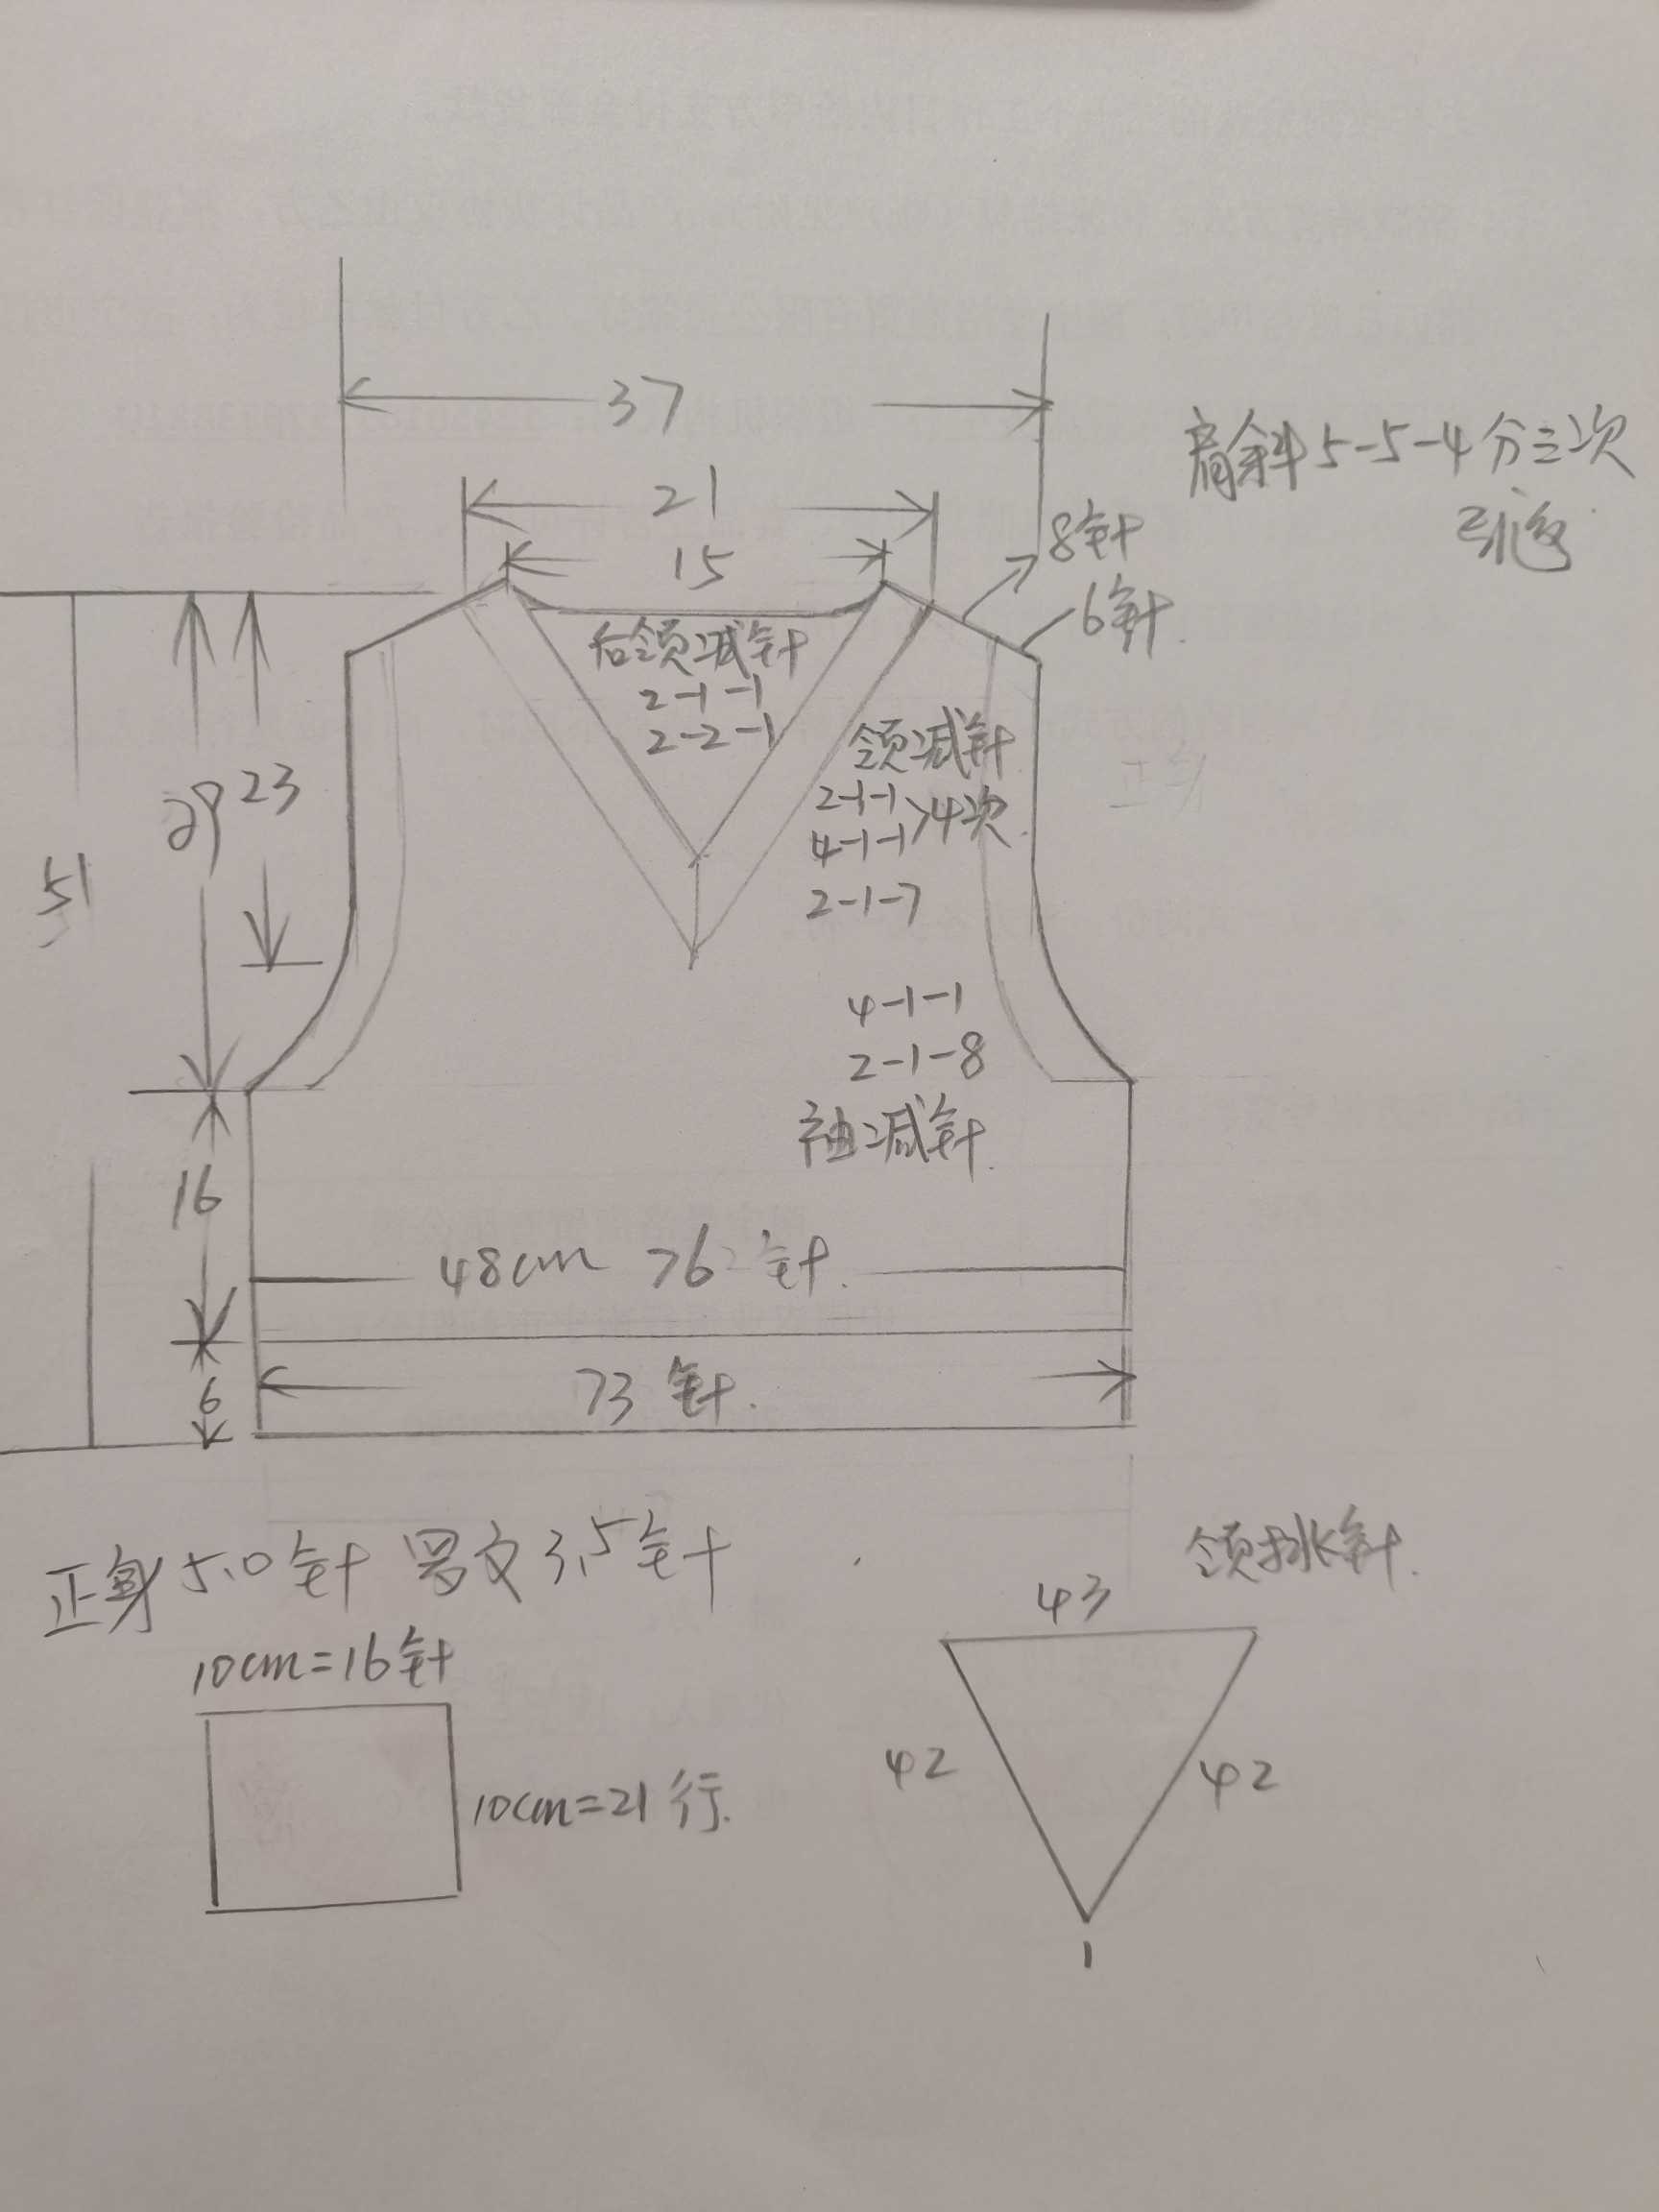 37
肩斜5-5-4分三次
引返
21
8针
15
6针.
后领减针
2-1-1
2-2-1
领减针
2-1-1
4-1-1 >4次.
2-1-7
29
23
51
4-1-1
2-1-8
袖减针.
16
48cm 76针.
73针.
6
正身5.0针 罗文3.5针
领挑针.
43
10cm=16针
42
42
10cm=21行.
1